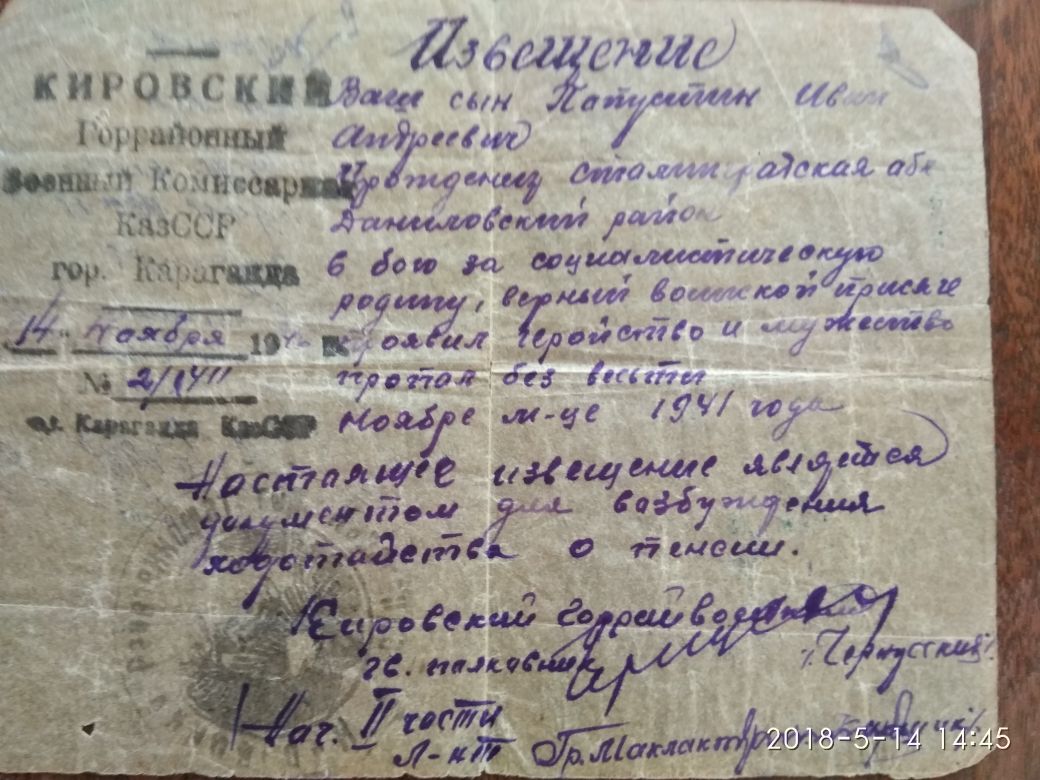 Извещение
КИРОВСКИЙ
Горрайонный
Военный Комиссариат
КазССР
гор. Караганда
14 ноября 194
№ 2/1411
гор. Караганда КазССР
Ваш сын Папустин Иван
Андреевич
Урожденец сталинградская
Даниловский район
в бою за социалистическую
родину, верный воинской присяге
проявил геройство и мужество
пропал без вести
Ноябре м-це 1941 года
Настоящее извещение является
документом для возбуждения
ходотайства о пенсии.
Кировский горрайвоенком
гв. полковник
Нач. II части
Л-нт
2018-5-14 14:45